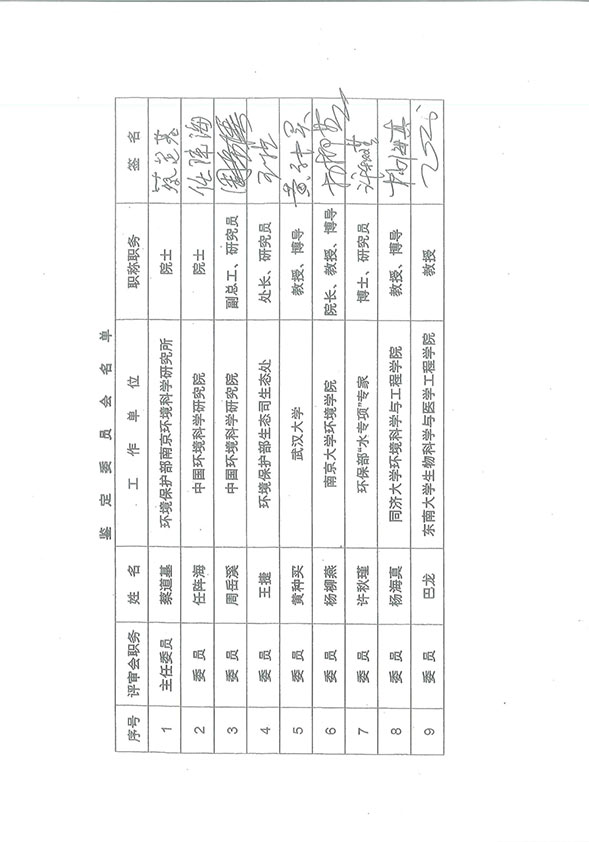 鉴 定 委 员 会 名 单
序号 评审会职务 姓 名 工 作 单 位 职称职务 签 名
1 主任委员 蔡道基 环境保护部南京环境科学研究所 院士 蔡道基
2 委 员 任阵海 中国环境科学研究院 院士 任阵海
3 委 员 周岳溪 中国环境科学研究院 副总工、研究员
4 委 员 王捷 环境保护部生态司生态处 处长、研究员
5 委 员 黄种买 武汉大学 教授、博导
6 委 员 杨柳燕 南京大学环境学院 院长、教授、博导
7 委 员 许秋瑾 环保部“水专项”专家 博士、研究员
8 委 员 杨海真 同济大学环境科学与工程学院 教授、博导
9 委 员 巴龙 东南大学生物科学与医学工程学院 教授